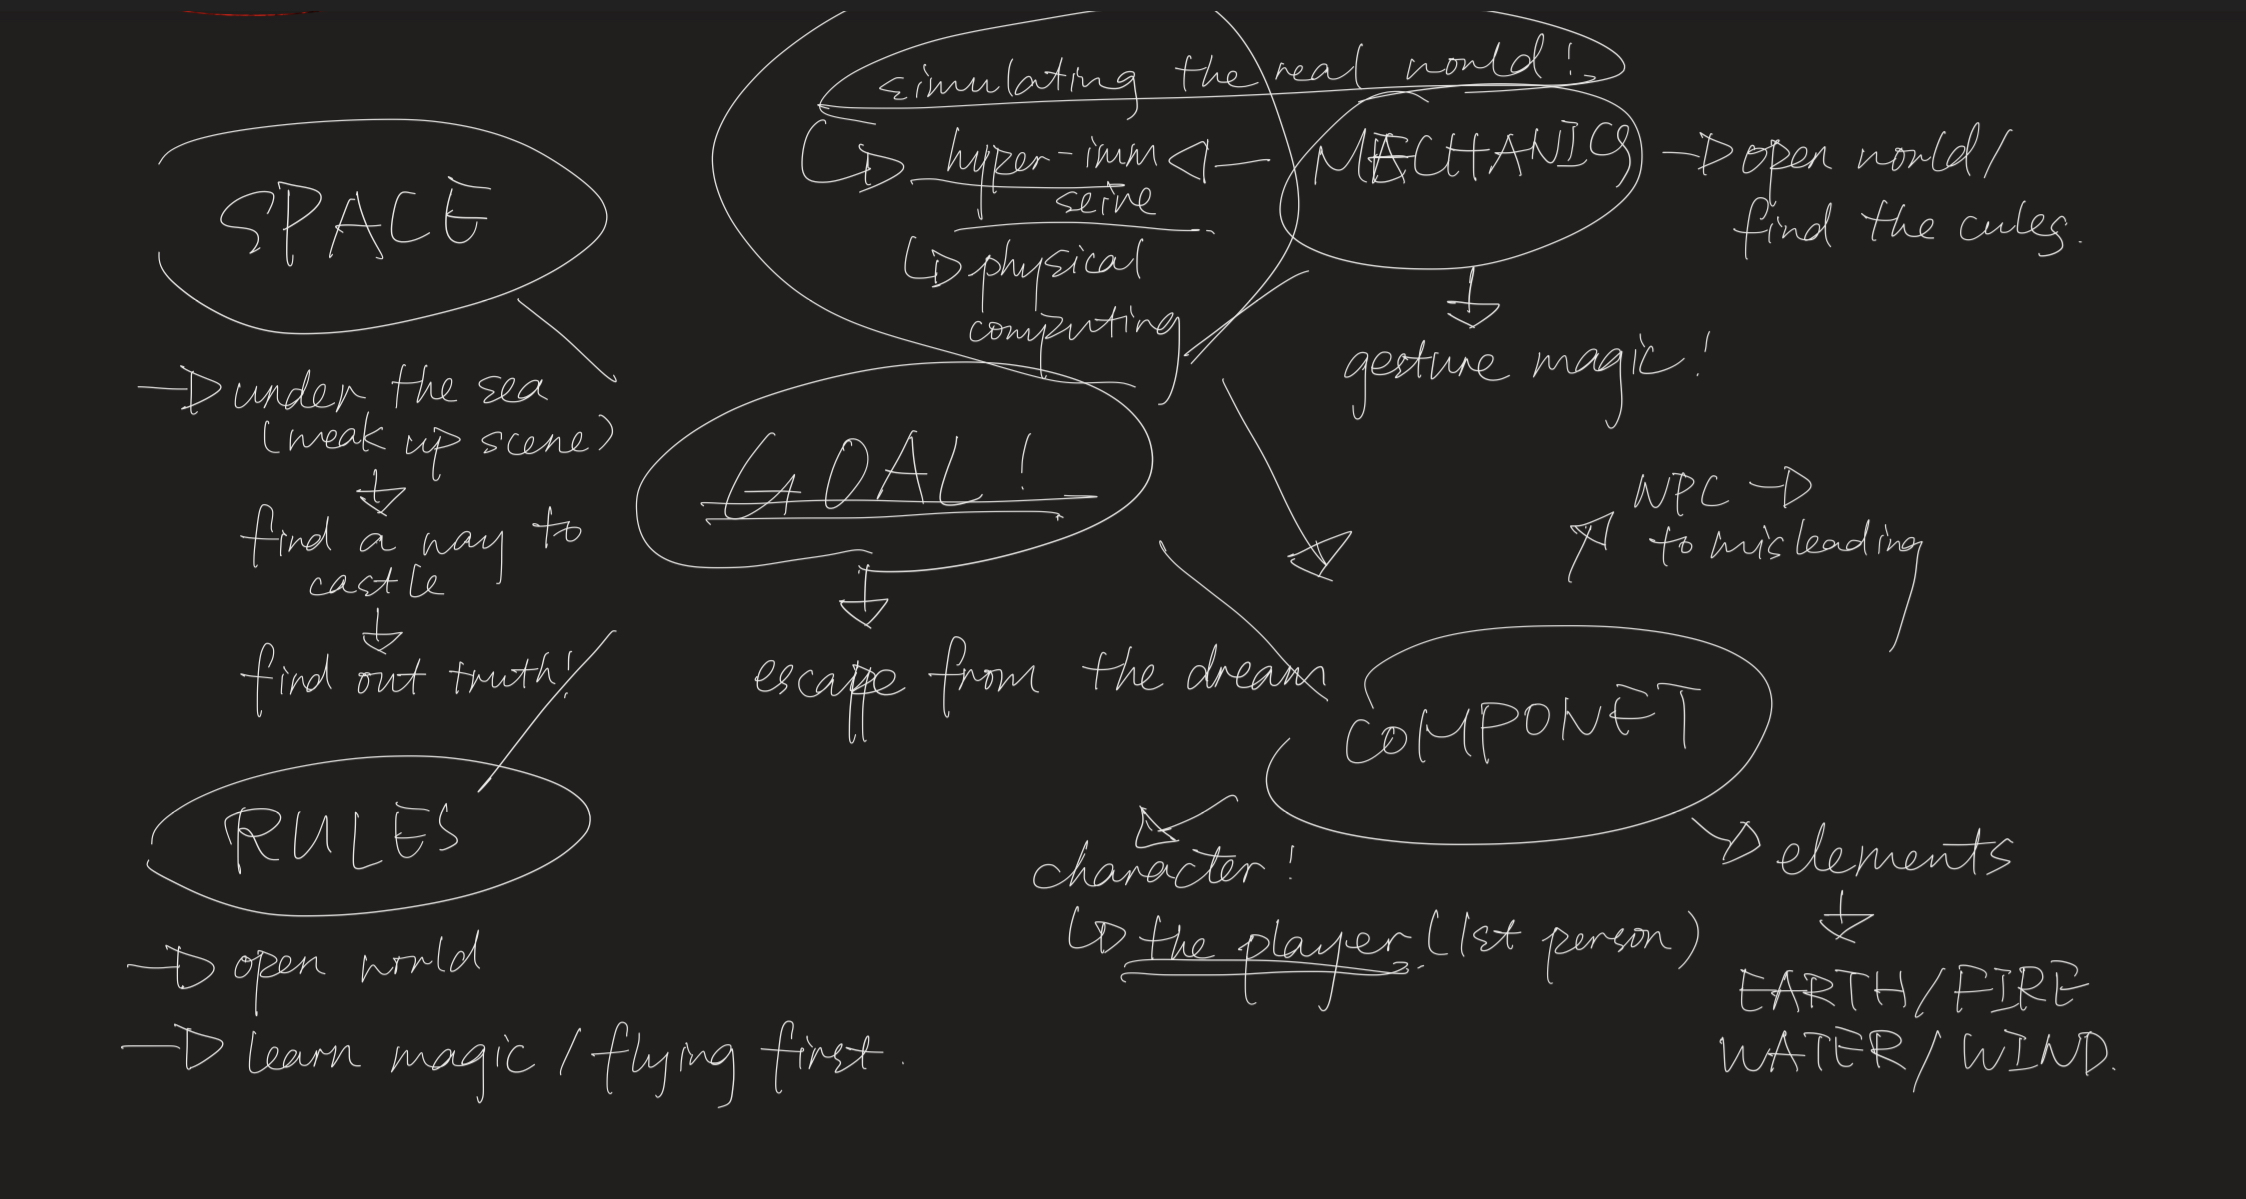 simulating the real world!
hyper-imm
seire
physical
computing
MECHANICS
open world/
find the cules.
gesture magic!
SPACE
under the sea
(weak up scene)
find a way to
castle
find out truth!
GOAL!
escape from the dream
NPC
to misleading
COMPONET
character!
the player. (1st person)
elements
EARTH/FIRE
WATER/WIND.
RULES
open world
learn magic/flying first.